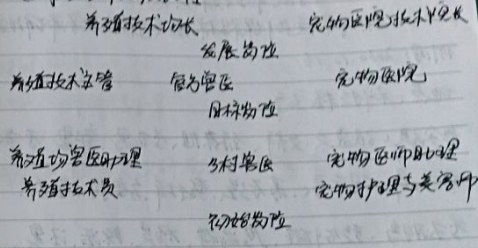 养殖技术场长 宠物医院技术院长
发展岗位
养殖技术主管 官方兽医 宠物医院
目标岗位
养殖场兽医助理 乡村兽医 宠物医师助理
养殖技术员 宠物护理与美容师
初始岗位